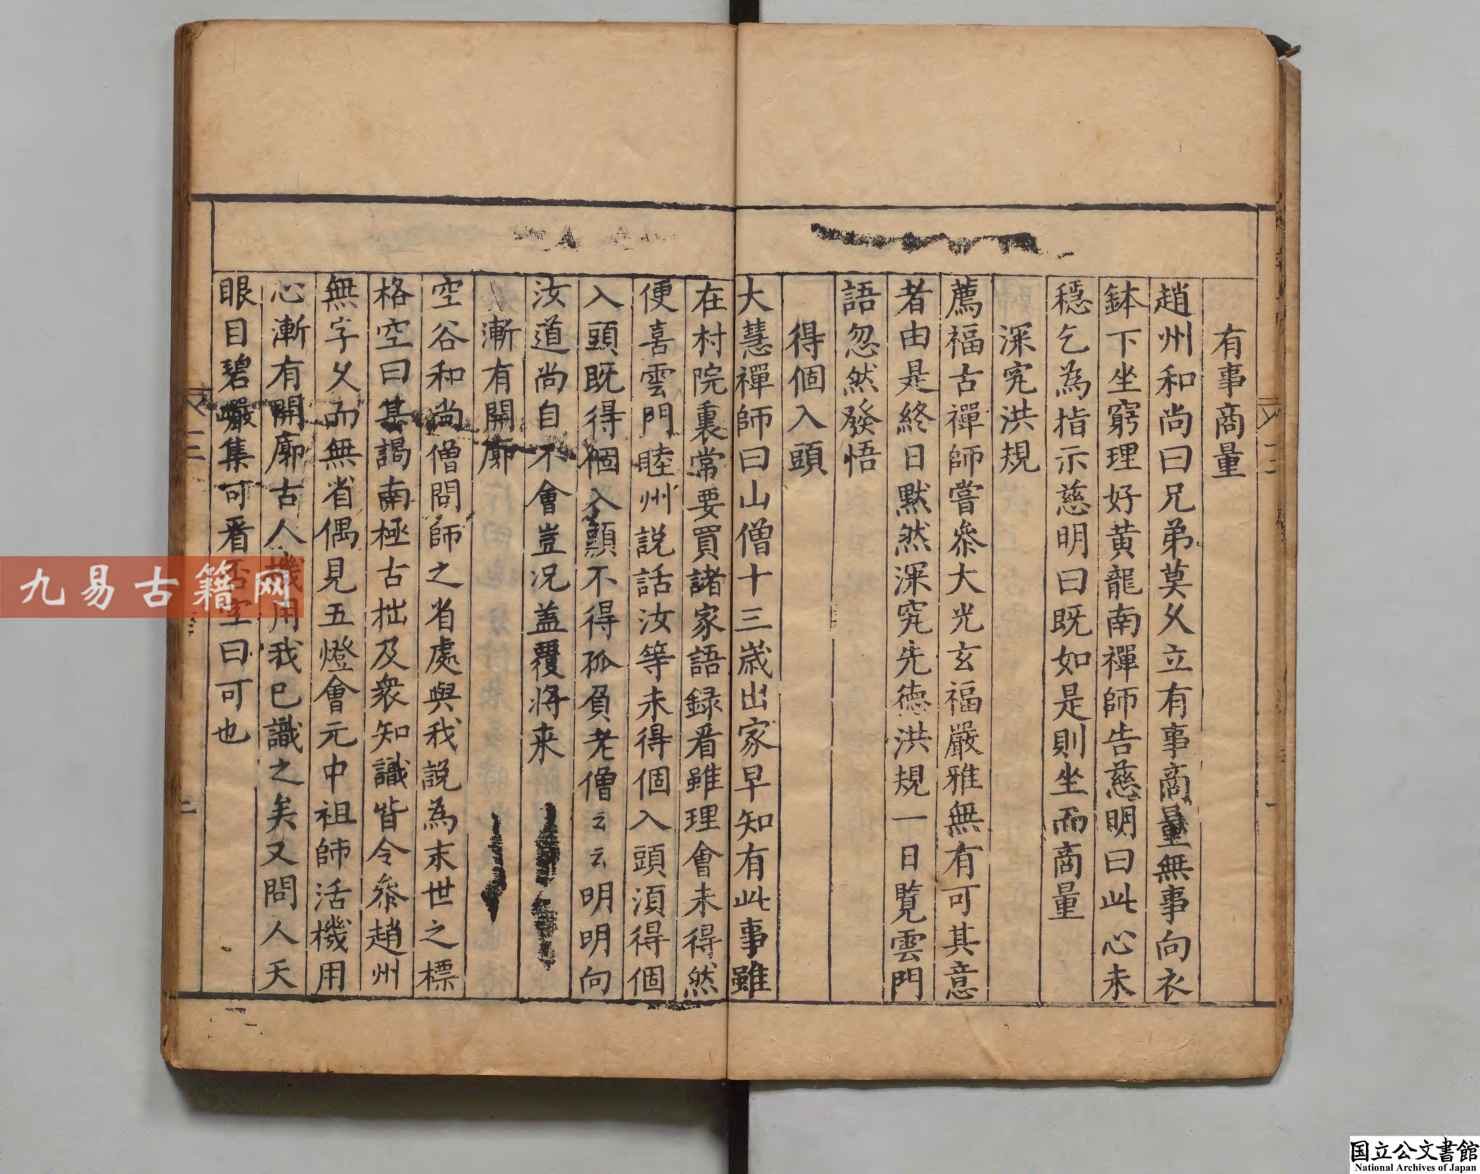 有事商量
趙州和尚曰兄弟莫久立有事商量無事向衣
鉢下坐窮理好黄龍南禪師告慈明曰此心未
穩乞為指示慈明曰既如是則坐而商量
深究洪規
薦福古禪師嘗叅大光玄福嚴雅無有可其意
者由是終日默然深究先德洪規一日覧雲門
語忽然發悟
得個入頭
大慧禪師曰山僧十三歳出家早知有此事雖
在村院裏常要買諸家語録㸔雖理會未得然
便喜雲門睦州説話汝等未得個入頭須得個
入頭既得個入頭不得孤負老僧云云明明向
汝道尚自不會豈况蓋覆将来
漸有開廓
空谷和尚僧問師之省處與我説為末世之標
格空曰某謁南極古拙及衆知識皆令叅趙州
無字久而無省偶見五燈會元中祖師活機用
心漸有開廓古人機用我已識之矣又問人天
眼目碧巖集可㸔否空曰可也
九易古籍网
国立公文書館
National Archives of Japan